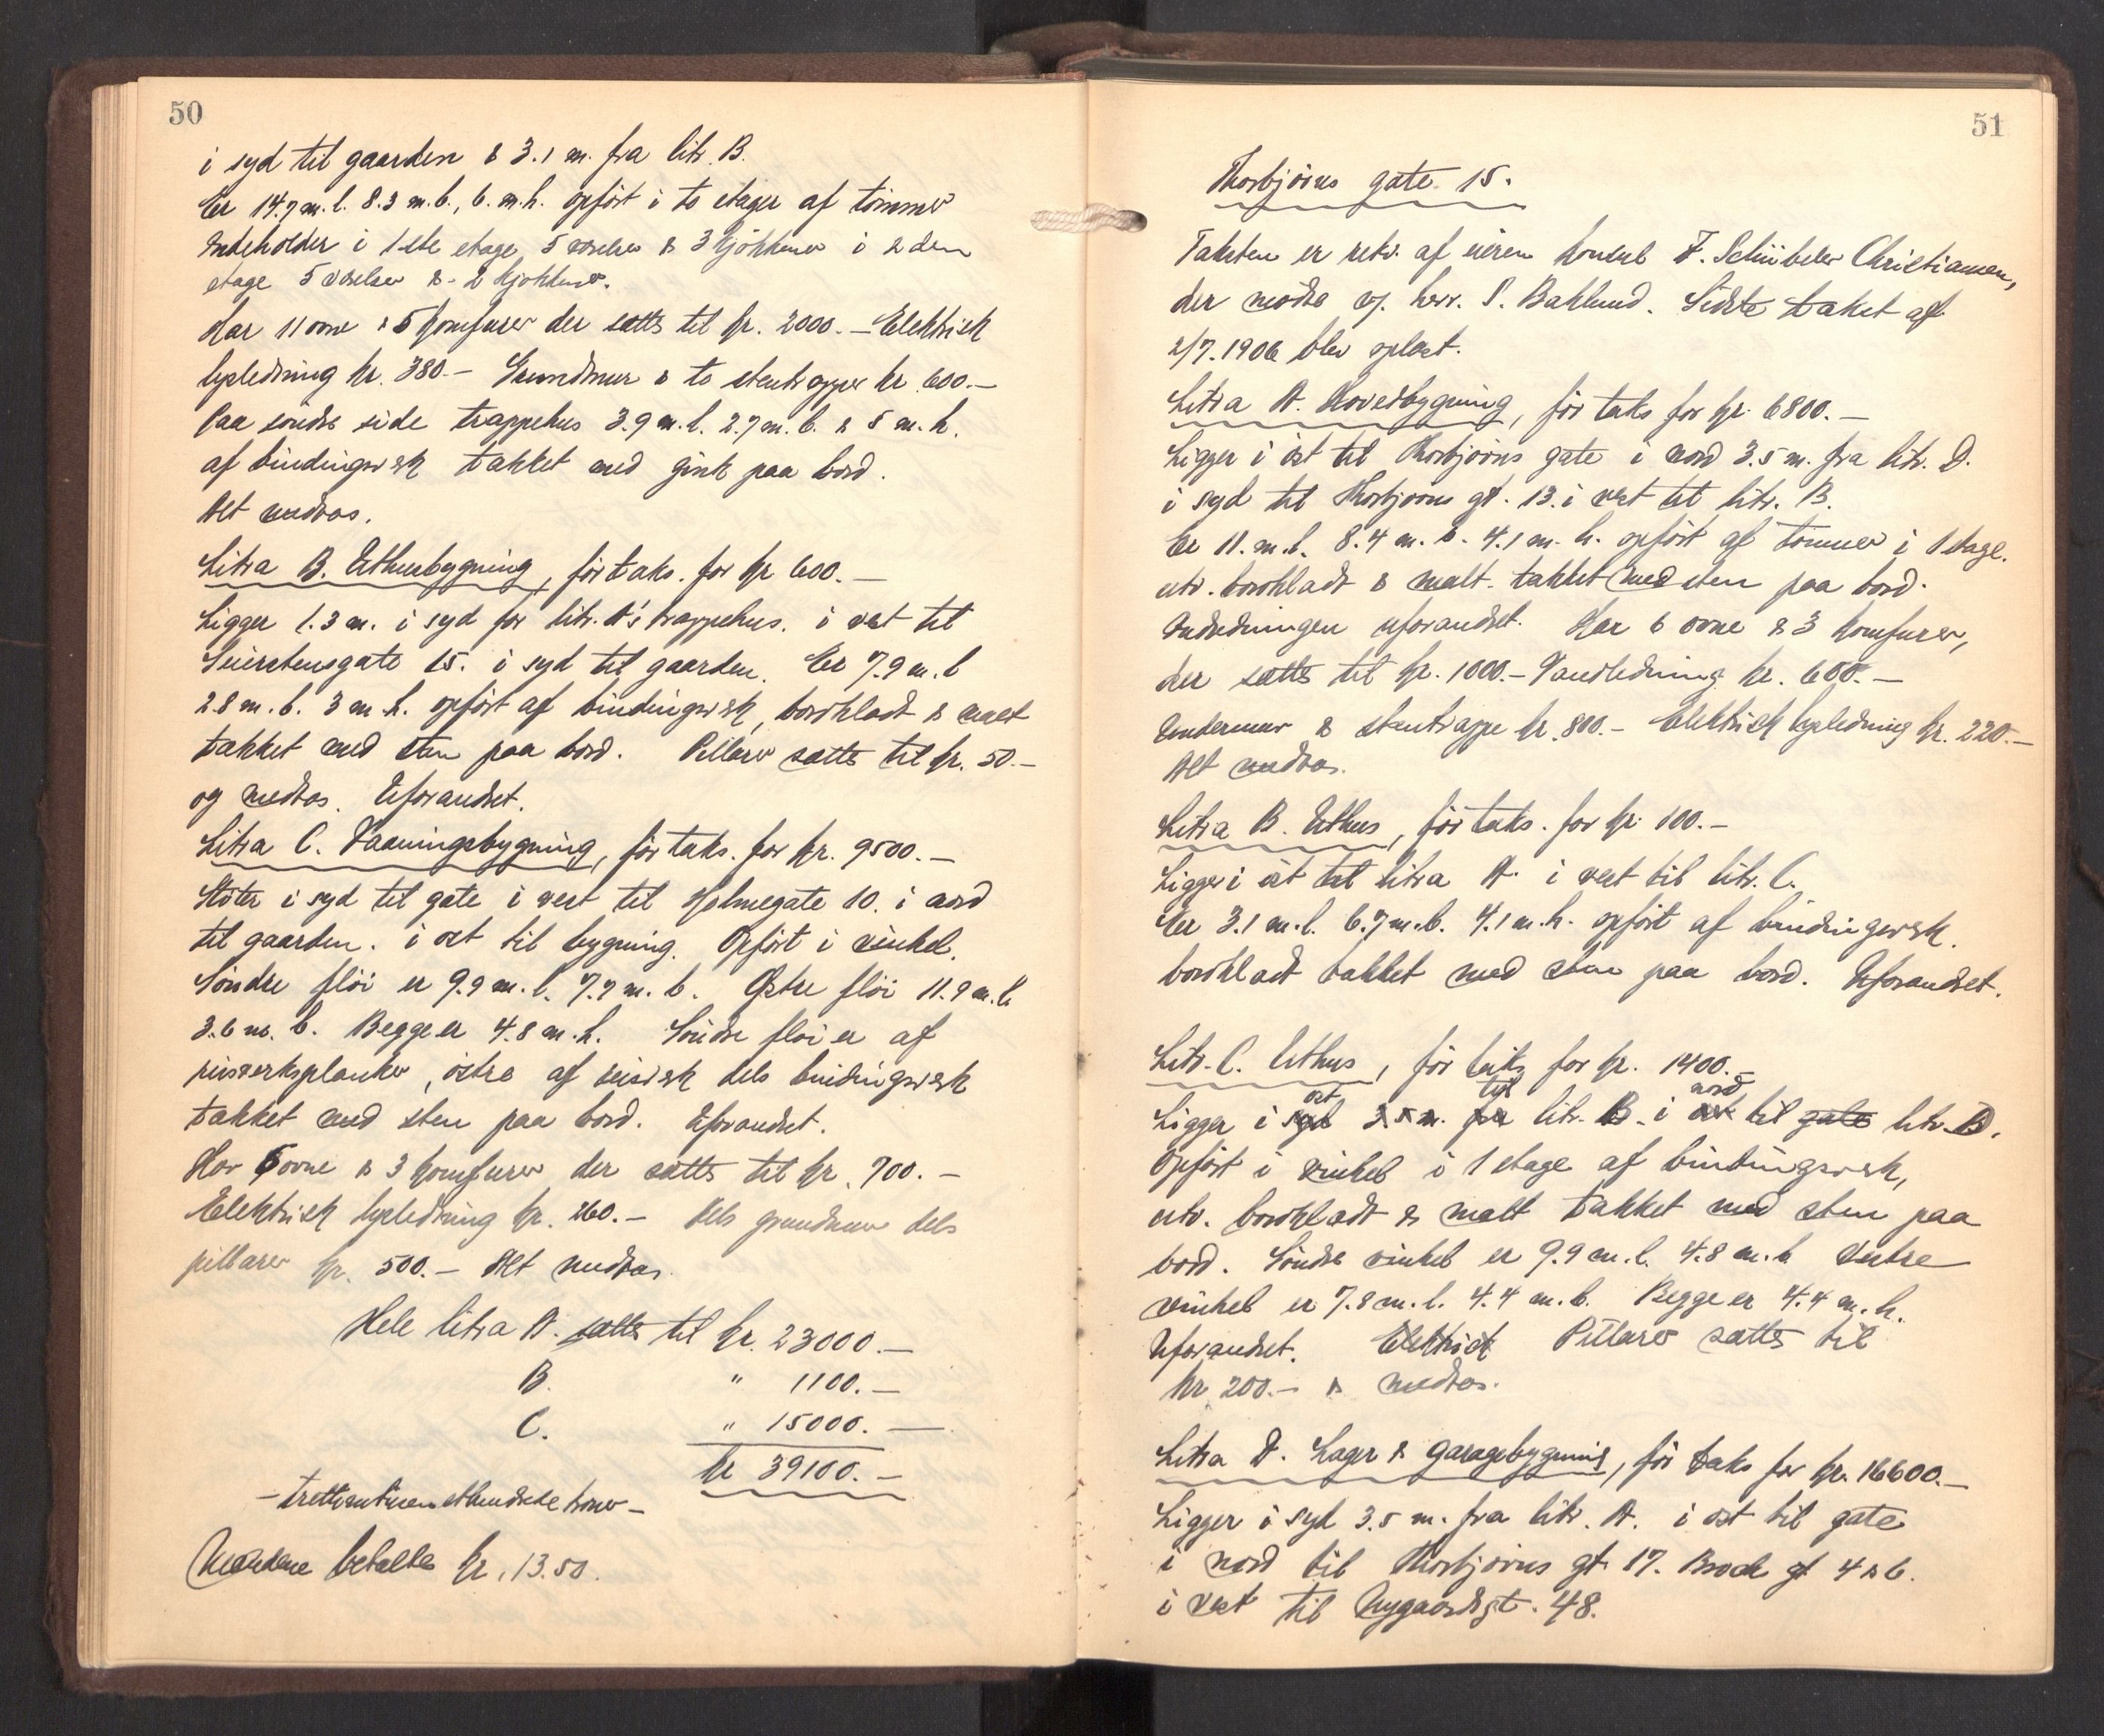 50
i syd til gaarden & 3.1 m. fra litr. B.
Er 14.7 m. l. 8.3 m. b., 6. m. h. opført i to etager af tømmer
Indeholder i 1ste etage 5 værelser & 3 kjøkkener i 2den
etage 5 værelser & 2 kjøkkener.
Har 11 ovne & 5 komfurer der sættes til kr. 2000.— Elektrisk
lysledning kr. 380.— Grundmur & to stentrapper kr 600.—
Paa søndre side trappehus 3.9 m. l. 2.7 m. b. & 5 m. h.
af bindingsverk takket med zink paa bord.
Alt medtas.
Litra B. Uthusbygning, før taks. for kr 600.—
Ligger 1.3 m. i syd for litr. A's trappehus. i vest til
Steinstensgate 15. i syd til gaarden. Er 7.9 m. l
2.8 m. b. 3 m. h. opført af bindingsverk, bordklædt & malt
takket med sten paa bord. Pillarer sættes til kr. 50.—
og medtas. Uforandret.
Litra C. Vaaningsbygning, før taks. for kr. 9500.—
Støter i syd til gate i vest til Holmegate 10. i nord
til gaarden. i øst til bygning. Opført i vinkel.
Søndre fløi er 9.9 m. l. 7.7 m. b. Østre fløi 11.9 m. l.
3.6 m. b. Begge er 4.8 m. h. Søndre fløi er af
reisverksplanker, østre af reisverk dels bindingsverk
takket med sten paa bord. Uforandret.
Har 6 ovne & 3 komfurer der sættes til kr. 700.—
Elektrisk lysledning kr. 260.— Dels grundmur dels
pillarer kr. 500.— Alt medtas.
Hele litra A. sættes til kr. 23000.—
B. " 1100.—
C. " 15000.—
kr 39100.—
— Trettinitusen ethundrede kroner —
Mændene betaltes kr. 13.50.
51
Thorbjørns gate 15.
Taksten er rekv. af eieren konsul F. Schübeler Christiansen,
der mødte v. herr S. Baklund. Sidste takst af
2/7. 1906 blev oplæst.
Litra A. Hovedbygning, før taks for kr. 6800.—
Ligger i øst til Thorbjørns gate i nord 3.5 m. fra litr. D.
i syd til Thorbjørns gt. 13. i vest til litr. B.
Er 11. m. l. 8.4 m. b. 4.1 m. h. opført af tømmer i 1 etage.
utv. bordklædt & malt. takket med sten paa bord.
Indredningen uforandret. Har 6 ovne & 3 komfurer,
der sættes til kr. 1000.— Vandledning kr. 600.—
Undermur & stentrappe kr 800.— Elektrisk lysledning kr. 220.—
Alt medtas.
Litra B. Uthus, før taks. for kr. 100.—
Ligger i øst til litra A. i vest til litr. C.
Er 3.1 m. l. 6.7 m. b. 4.1 m. h. opført af bindingsverk.
bordklædt takket med sten paa bord. Uforandret.
Litr. C. Uthus, før taks for kr. 1400.—
øst til nord
Ligger i syd 3.5 m. fra litr. B. i øst til gate litr. D.
Opført i vinkel i 1 etage af bindingsverk,
utv. bordklædt & malt takket med sten paa
bord. Søndre vinkel er 9.9 m. l. 4.8 m. b. Vestre
vinkel er 7.8 m. l. 4.4 m. b. Begge er 4.4 m. h.
Uforandret. Elektrisk Pillarer sættes til
kr 200.— & medtas.
Litra D. Lager & garagebygning, før taks for kr. 16600.—
Ligger i syd 3.5 m. fra litr. A. i øst til gate
i nord til Thorbjørns gt. 17. Brode gt 4 & 6.
i vest til Nygaardsgt. 48.